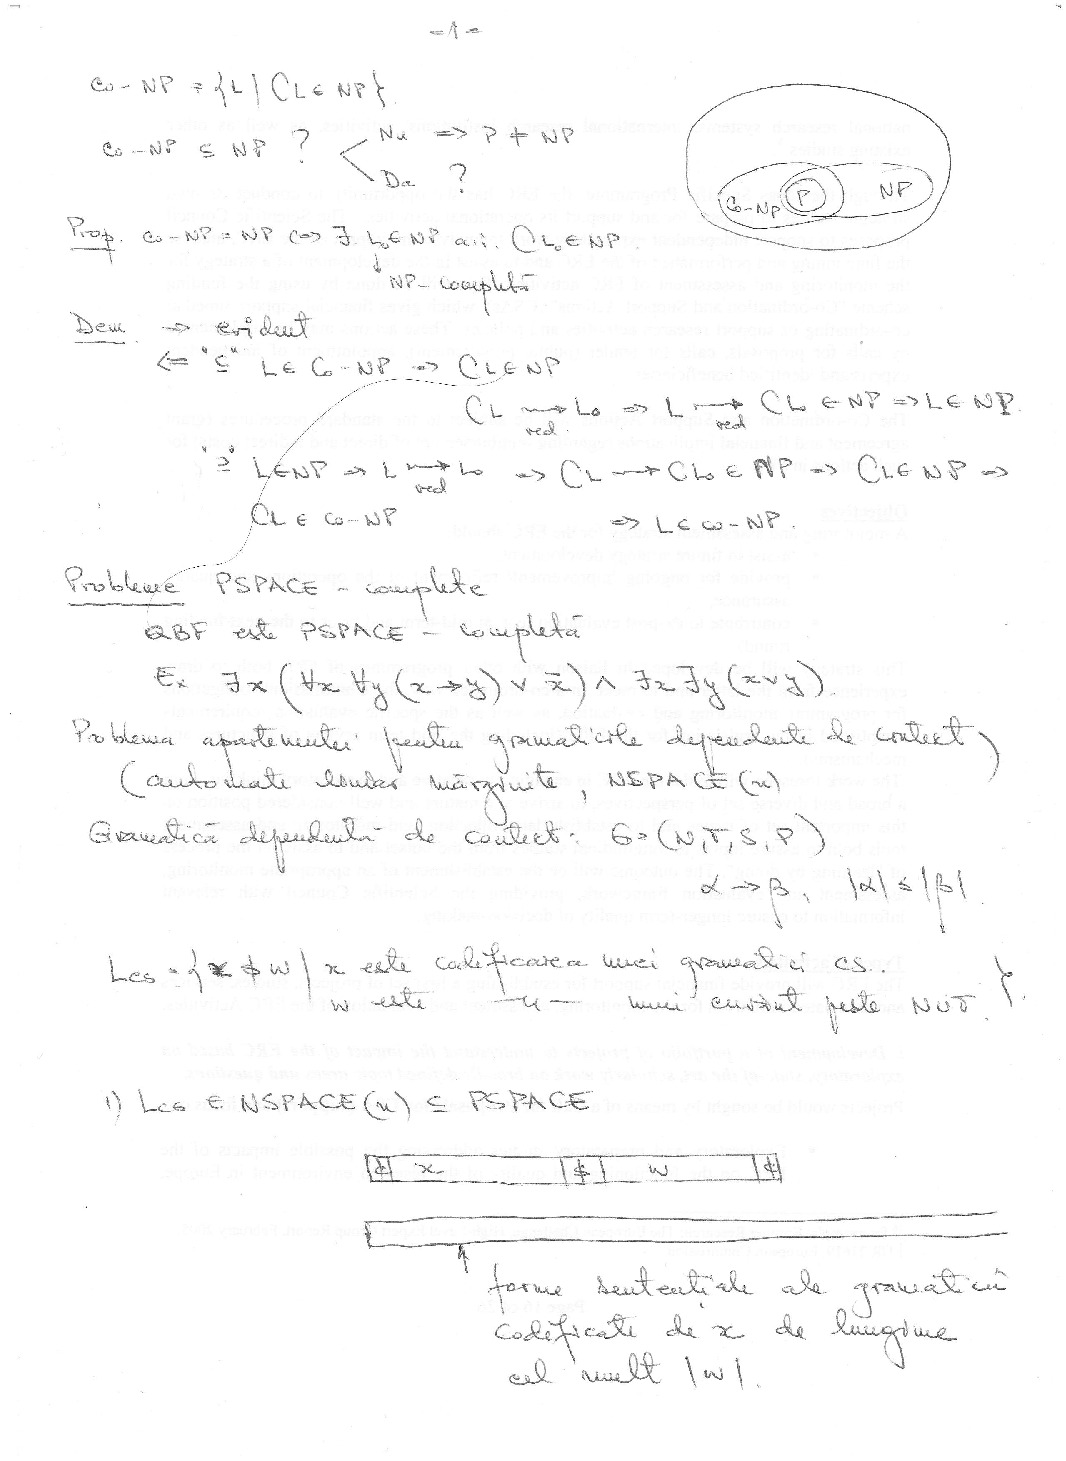 -1-
Co-NP = {L | CL ∈ NP}
Co-NP ⊆ NP ? Nu => P ≠ NP
Da ?
Co-NP P NP
Prop. Co-NP = NP <=> ∃ L₀ ∈ NP a.i. CL₀ ∈ NP
NP-completă
Dem => evident
<= "⊆" L ∈ Co-NP => CL ∈ NP
CL → L₀ => L → CL₀ ∈ NP => L ∈ NP.
red red
"⊇" L ∈ NP => L → L₀ => CL → CL₀ ∈ NP => CL ∈ NP =>
red
CL ∈ co-NP => L ∈ co-NP.
Probleme PSPACE-complete
QBF este PSPACE-completă
Ex ∃x (∀x ∀y (x → y) ∨ x̄) ∧ ∃x ∃y (x ∨ y)
Problema apartenentei pentru gramaticile dependente de context
(automate liniar mărginite, NSPACE(n))
Gramatică dependentă de context: G = (N, T, S, P)
α → β, |α| ≤ |β|
Lcs = {x $ w | x este codificarea unei gramatici CS.
w este —u— unui cuvânt peste N∪T. }
1) Lcs ∈ NSPACE(n) ⊆ PSPACE
¢ x $ w ¢
forme sentențiale ale gramaticii
codificate de x de lungime
cel mult |w|.